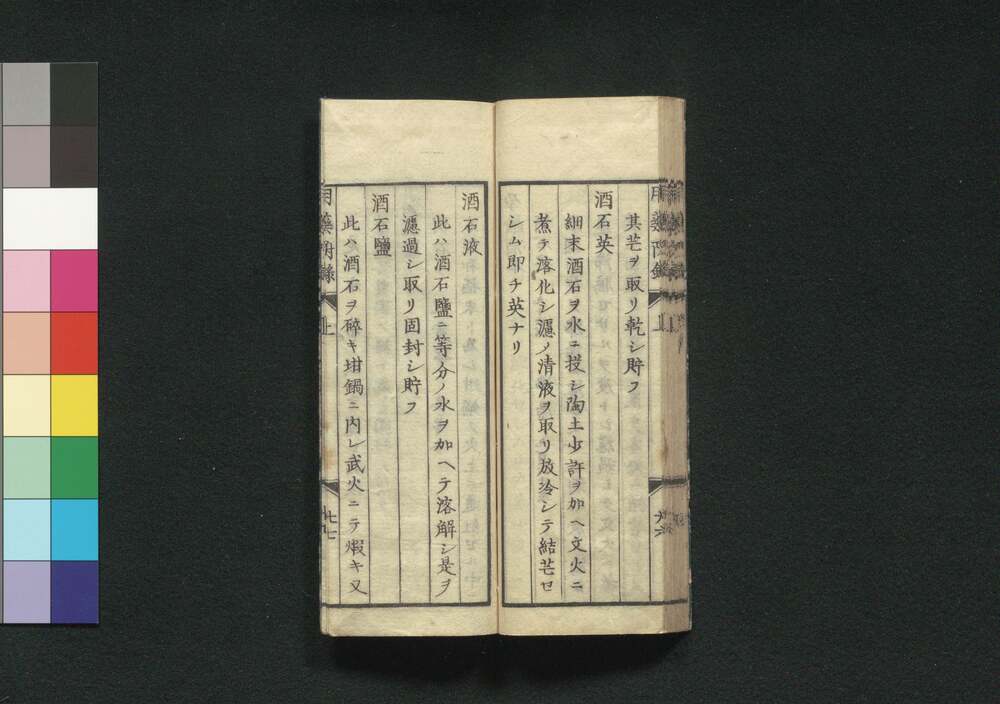 其芒ヲ取リ乾シ貯フ
酒石英
細末酒石ヲ水ニ投シ陶土少許ヲ加ヘ文火ニ
煮テ溶化シ濾ノ清液ヲ取リ放冷シテ結芒セ
シム即チ英ナリ
酒石液
此ハ酒石鹽ニ等分ノ水ヲ加ヘテ溶解シ是ヲ
濾過シ取リ固封シ貯フ
酒石鹽
此ハ酒石ヲ碎キ坩鍋ニ内レ武火ニテ煆キ又
用藥附錄
上
七七